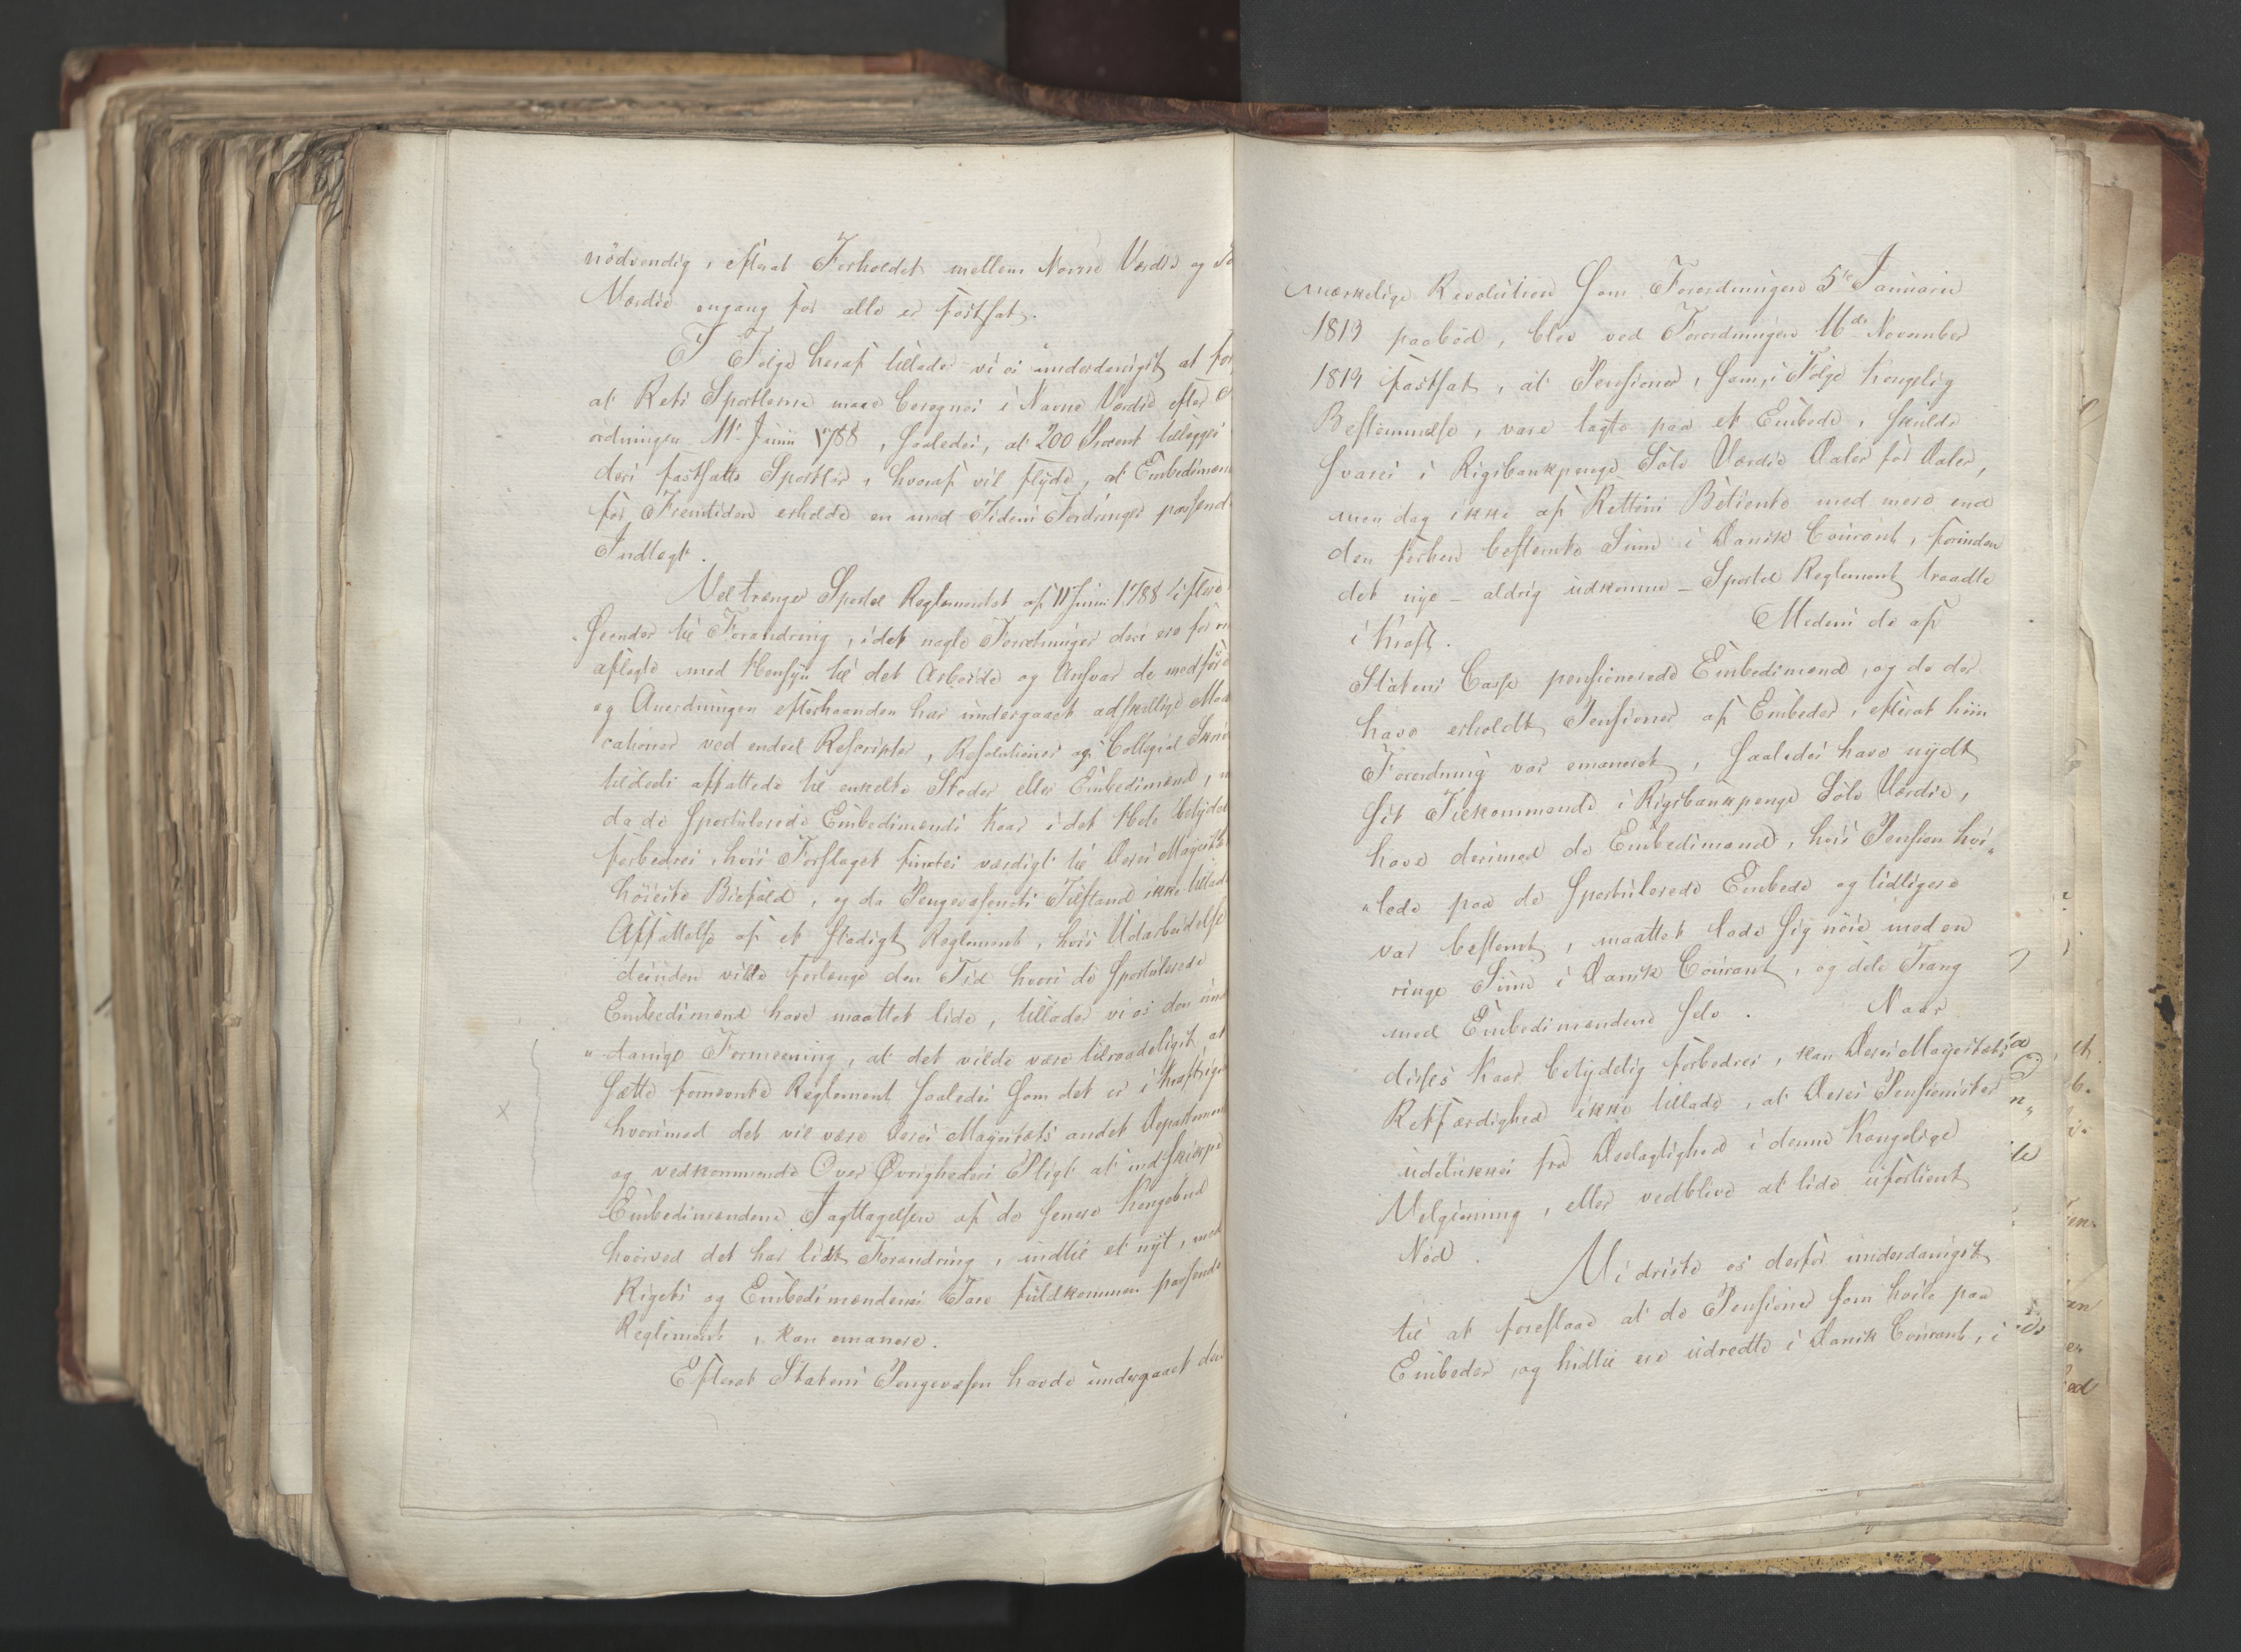 nödvendig, efterat Forholdet mellem Navne Værdie og
Værdie engang for alle er fastsat.
I Følge heraf tillade vi os underdanigst at
at Rets Sportlerne maae beregnes i Navne Værdie efter
ordningen 11te Junii 1788, saaledes, at 200 Procent tillægges
deri fastsatte Sportler, hvoraf vil flyde, at Embedsmænd
for Fremtiden erholde en med Tidens Fordringer passende
Indtægt.
Vel trænger Sportel Reglementet af 11 Junii 1788 i flere
Henseender til Forandring, idet nogle Forretninger deri ere for
aflagte med Hensyn til det Arbeide og Ansvar de medføre
og Anordningen efterhaanden har undergaaet adskillige
cationer ved endeel Rescripter, Resolutioner og Collegial
tildeels affattede til enkelte Steder eller Embedsmænd,
da de sportulerede Embedsmænds Kaar i det Hele betydelig
forbedres, hvis Forslaget findes værdigt til Deres Majestæts
høieste Biefald, og da Pengevæsenets Tilstand ikke tillade
Affattelse af et stadigt Reglement, hvis Udarbeidelse
desuden vilde forlænge den Tid hvori de sportulerede
Embedsmænd have maattet lide, tillade vi os den
„danige Formeening, at det vilde være tilraadeligst, at
sætte fornævnte Reglement saaledes som det er i Kraft igien
hvorimod det vil være Deres Majestæts andet Departement
og vedkommende Over Øvrigheders Pligt at indskjærpe
Embedsmændene Iagttagelsen af de senere Kongebud
hvorved det har lidt Forandring, indtil et nyt, med
Rigets og Embedsmændenes Tarv fuldkommen passende
Reglement, kan emanere.
Efterat Statens Pengevæsen havde undergaaet den
mærkelige Revolution som Forordningen 5te Januarii
1813 paabød, blev ved Forordningen 16de November
1813 fastsat, at Pensioner, som, i Følge Kongelig
Bestemmelse, vare lagte paa et Embede, skulde
svares i Rigsbankpenge Sølv Værdie Daler for Daler,
men dog ikke af Rettens Betiente med mere end
den forhen bestemte Sum i Dansk Courant, forinden
det nye – aldrig udkomne – Sportel Reglement traadte
i Kraft. Medens de af
Statens Casse pensionerede Embedsmænd, og de der
have erholdt Pensioner af Embeder, efterat hiin
Forordning var emaneret, saaledes have nydt
sit Tilkommende i Rigsbankpenge Sølv Værdie,
have derimod de Embedsmænd, hvis Pension hvi„
„lede paa de sportulerede Embede og tidligere
var bestemt, maattet lade sig nøie med en
ringe Sum i Dansk Courant, og dele Trang
med Embedsmændene selv. Naar
disses Kaar betydelig forbedres, kan Deres Majestæts
Retfærdighed ikke tillade, at Deres Pensionister
udelukkes fra Deelagtighed i denne Kongelige
Velgierning, eller vedblive at lide ufortient
Nød. Vi driste os derfor underdanigst
til at foreslaae at de Pensioner som hvile paa
Embeder, og hidtil ere udredte i Dansk Courant, i